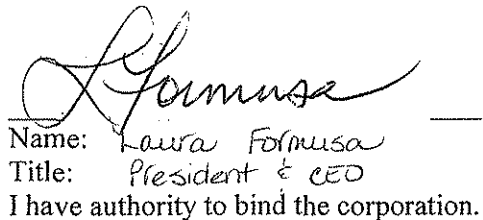 LFormusa
Name: Laura Formusa
Title: President & CEO
I have authority to bind the corporation.